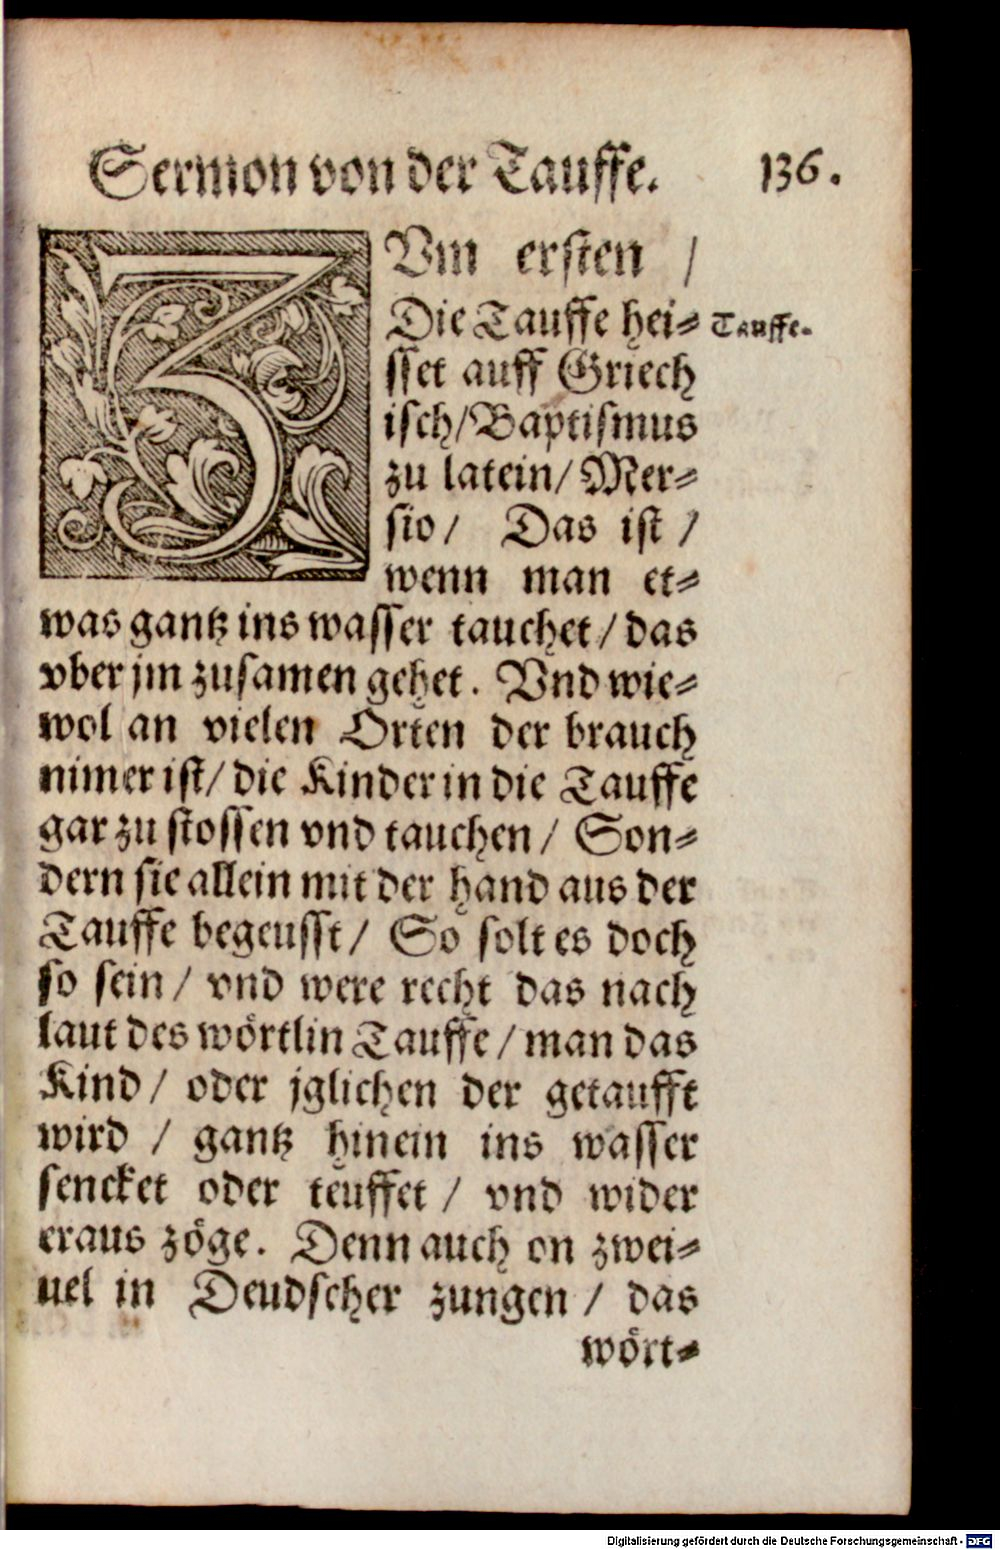 Sermon von der Tauffe. 136.
ZVm ersten /
Die Tauffe hei⸗
sset auff Griech
isch/ Baptismus
zu latein/ Mer⸗
sio / Das ist /
wenn man et⸗
was gantz ins wasser tauchet / das
vber jm zusamen gehet. Vnd wie⸗
wol an vielen Orten der brauch
nimer ist / die Kinder in die Tauffe
gar zu stossen vnd tauchen / Son⸗
dern sie allein mit der hand aus der
Tauffe begeusst / So solt es doch
so sein / vnd were recht das nach
laut des wörtlin Tauffe / man das
Kind / oder jglichen der getaufft
wird / gantz hinein ins wasser
sencket oder teuffet / vnd wider
eraus zöge. Denn auch on zwei⸗
uel in Deudscher zungen / das
wört⸗
Tauffe.
Digitalisierung gefördert durch die Deutsche Forschungsgemeinschaft - DFG